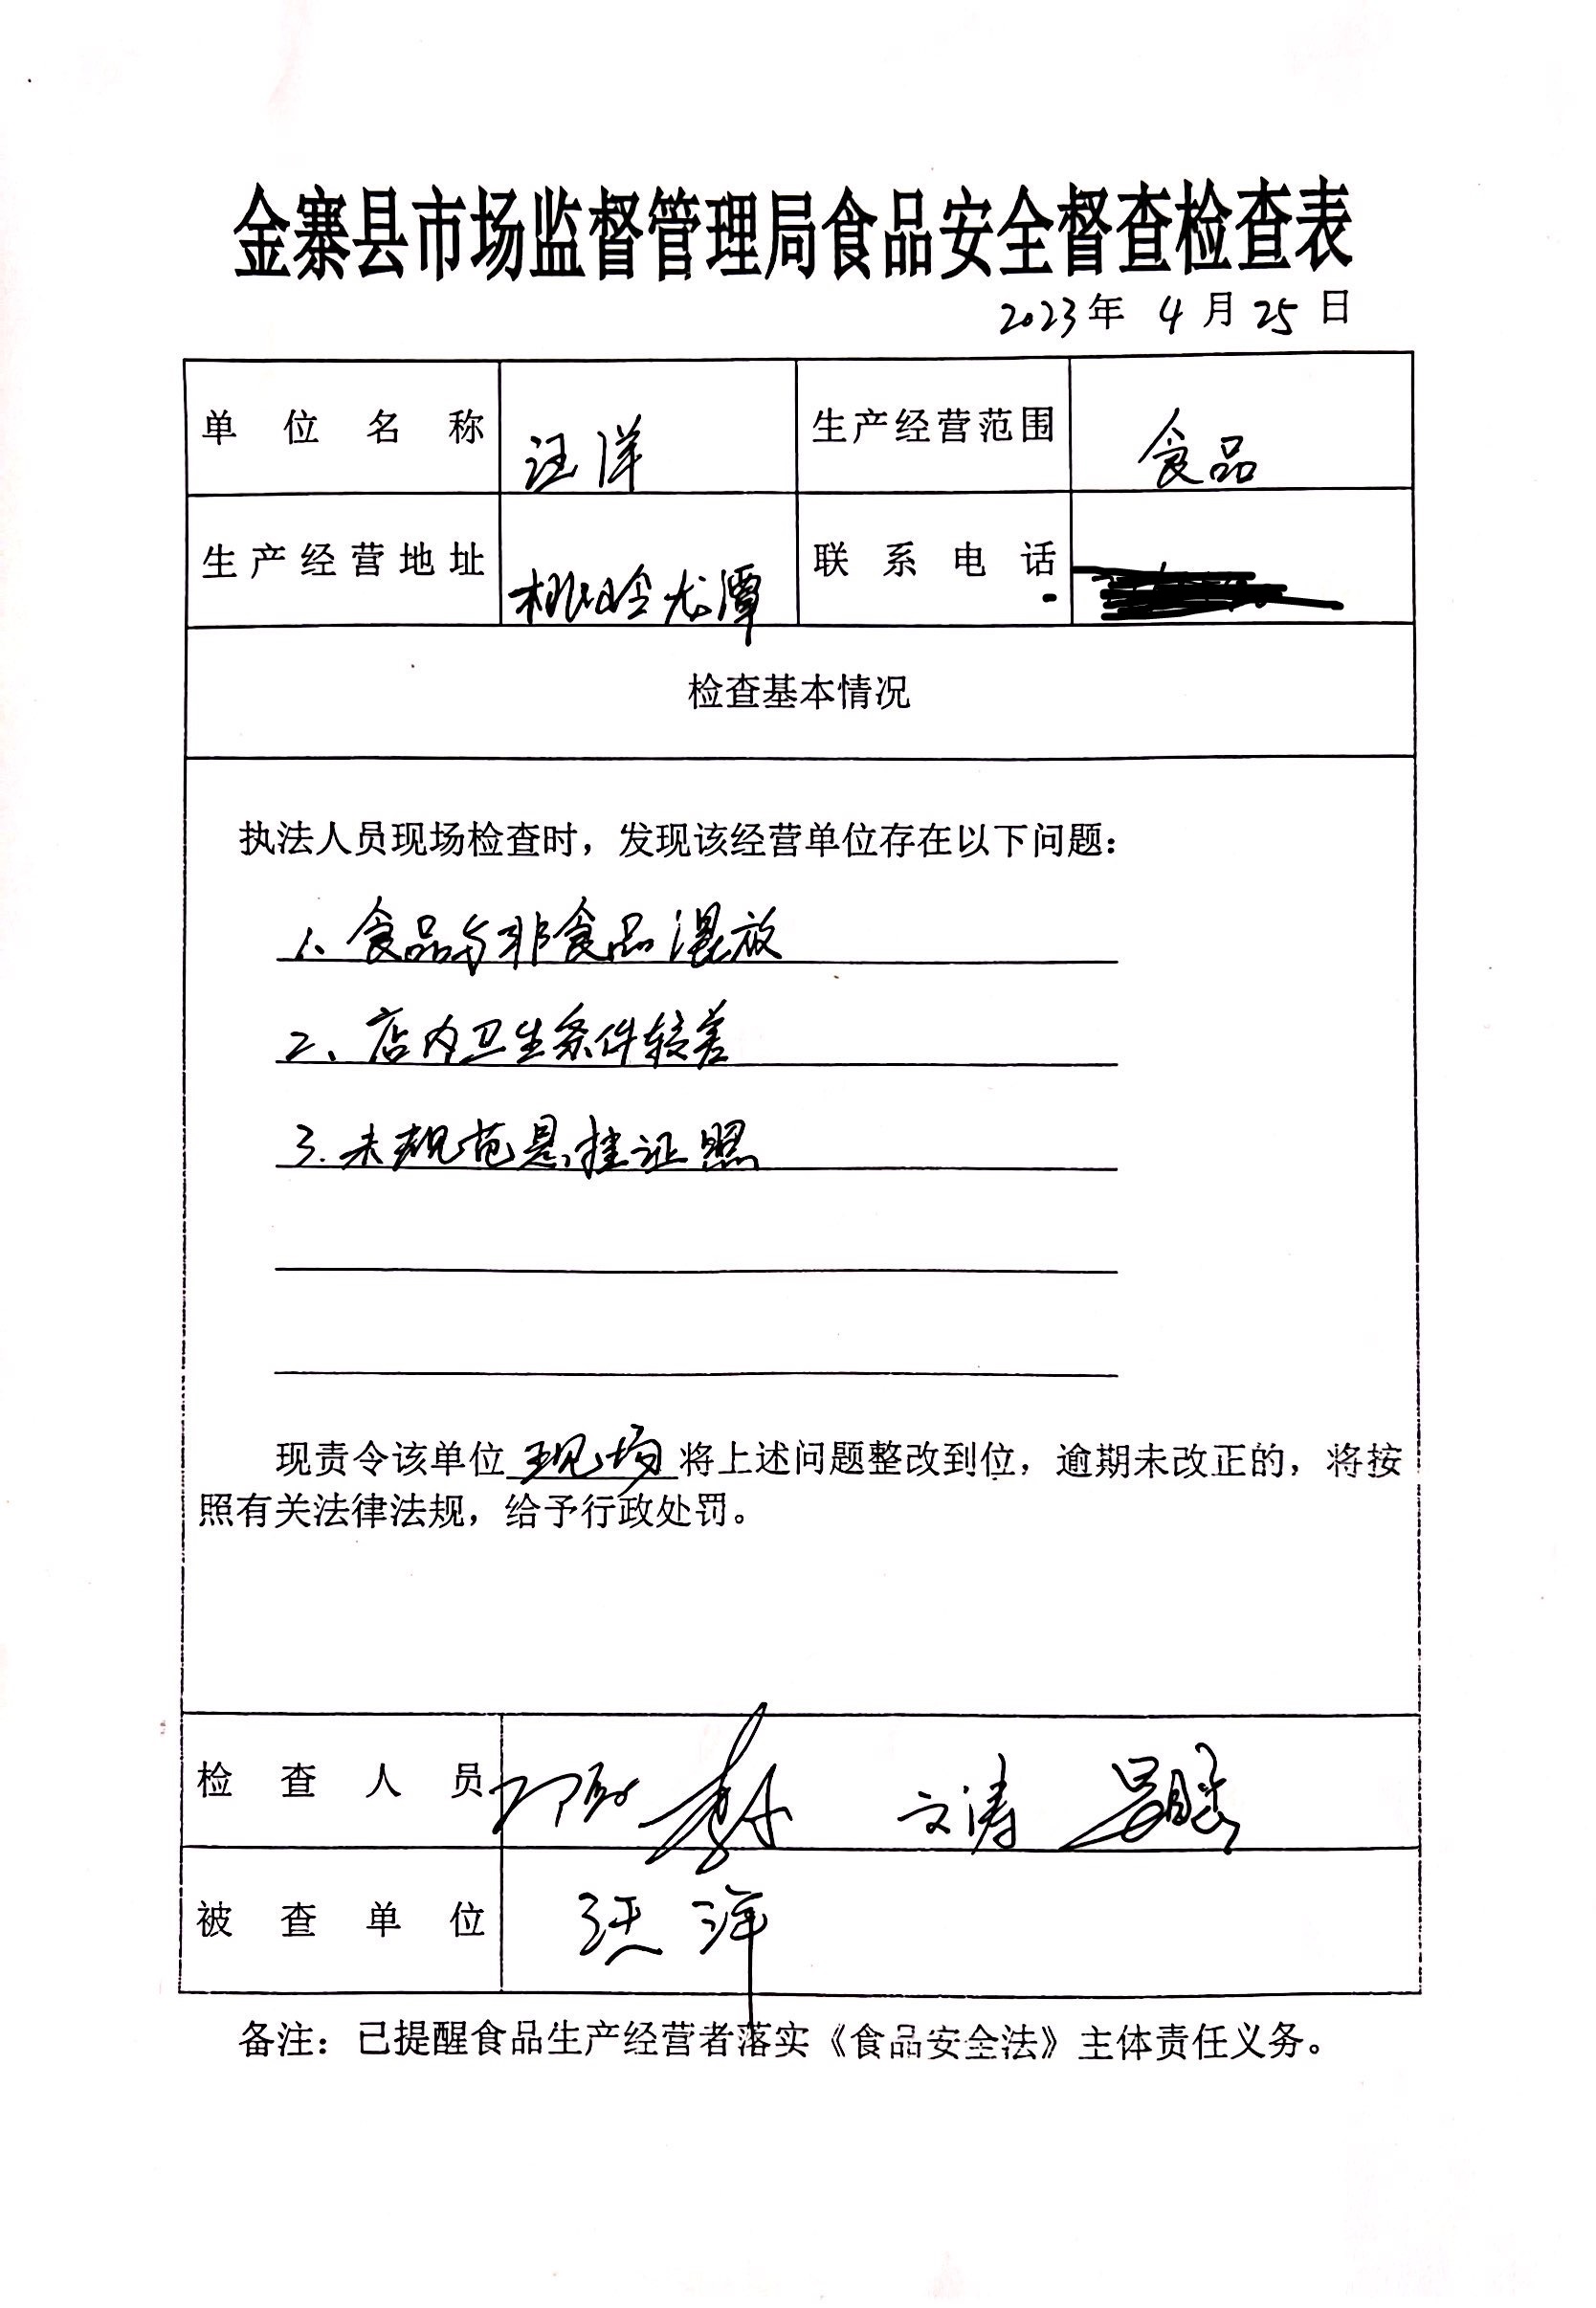 金寨县市场监督管理局食品安全督查检查表
2023年 4月25日
单位名称 汪洋 生产经营范围 食品
生产经营地址 桃岭龙潭 联系电话
检查基本情况
执法人员现场检查时，发现该经营单位存在以下问题：
1、食品与非食品混放
2、店内卫生条件较差
3.未规范悬挂证照
现责令该单位现场将上述问题整改到位，逾期未改正的，将按
照有关法律法规，给予行政处罚。
检查人员 文涛
被查单位 汪洋
备注：已提醒食品生产经营者落实《食品安全法》主体责任义务。